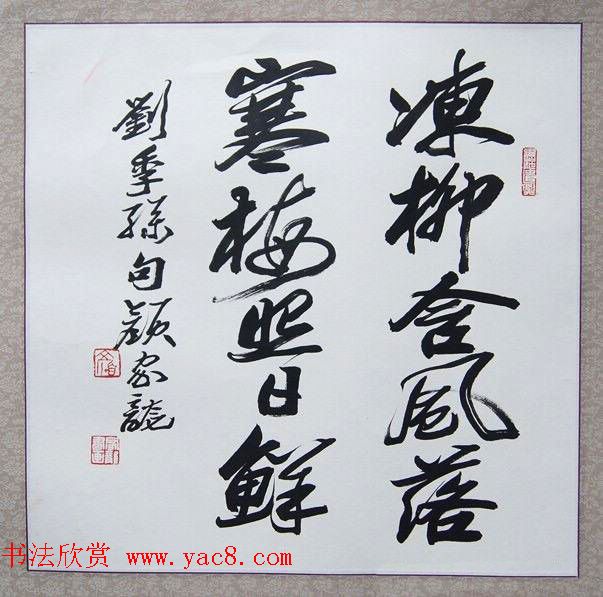 凍柳含風落
寒梅照日鮮
劉季孫句顏家龍
书法欣赏 www.yac8.com